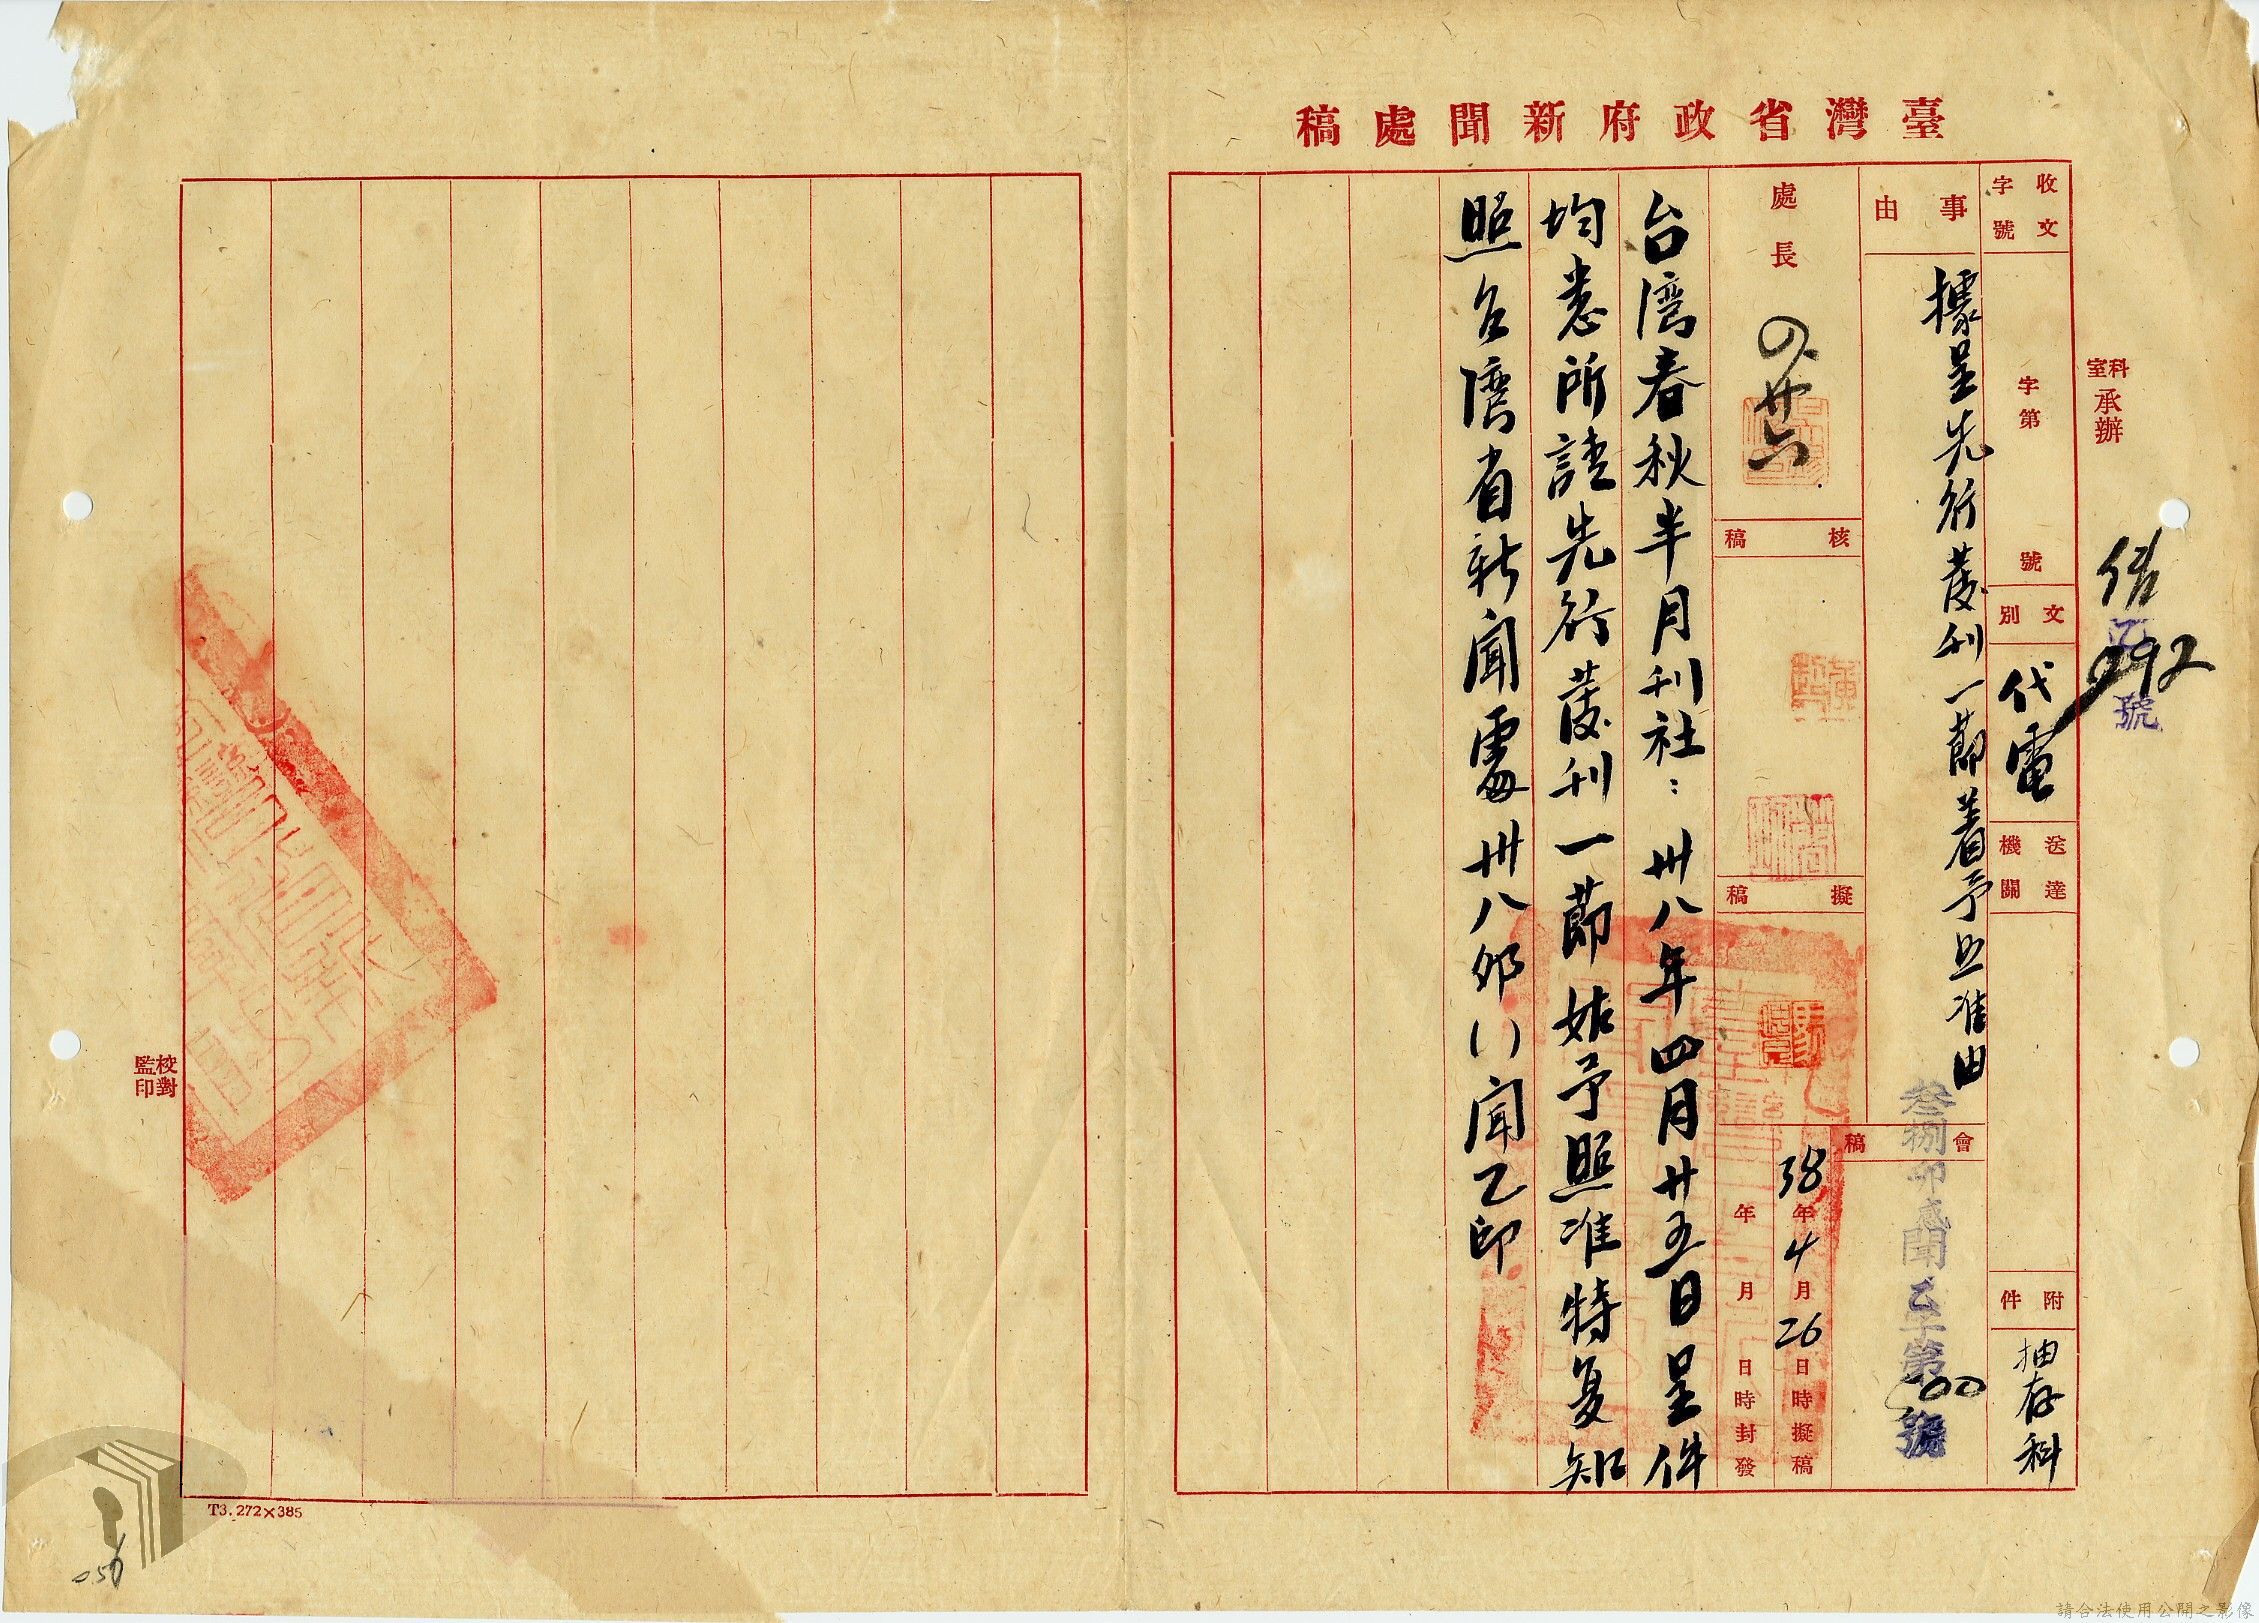 臺灣省政府新聞處稿
科室承辦
292
號
收文 字號
字第 號
文別
代電
送達機關
附件
抽存科
事由
據呈先行發刊一節着予照准由
會稿
叁捌卯感聞乙字第00號
處長
四、廿六
核稿
擬稿
38年4月26日時擬稿
年月日時封發
台湾春秋半月刊社:卅八年四月廿五日呈件
均悉所請先行發刊一節姑予照准特复知
照台湾省新聞處卅八卯()聞乙印
校對
監印
T3.272×385
056
請合法使用公開之影像